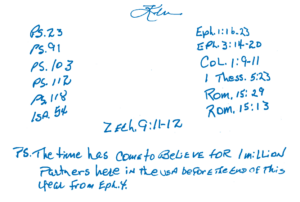 Ps. 23
Ps. 91
Ps. 103
Ps. 112
Ps 118
Isa 54
Eph 1:16-23
Eph 3:14-20
Col. 1:9-11
1 Thess. 5:23
Rom. 15:29
Rom. 15:13
Zech. 9:11-12
PS. The time has come to BELIEVE FOR 1 million
Partners here in the USA before the end of this
year from Eph. 4.